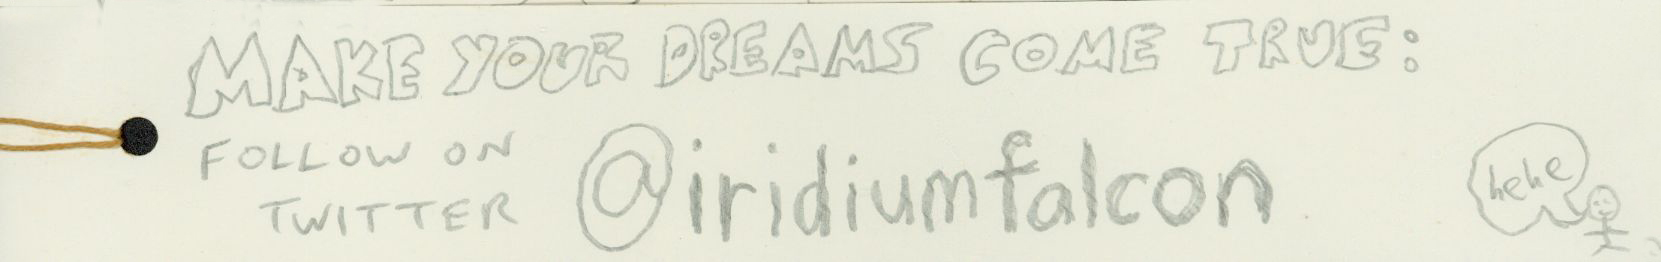 MAKE YOUR DREAMS COME TRUE:
FOLLOW ON
TWITTER
@iridiumfalcon
hehe